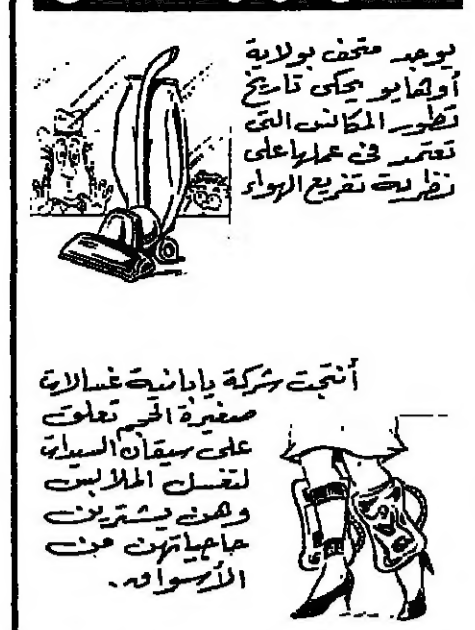 يوجد متحف بولاية
أوهايو يحكى تاريخ
تطور المكانس التى
تعتمد فى عملها على
نظرية تفريغ الهواء
أنتجت شركة يابانية غسالات
صغيرة الحجم تعلق
على سيقان السيدات
لتغسل الملابس
وهن يشترين
حاجياتهن من
الأسواق.